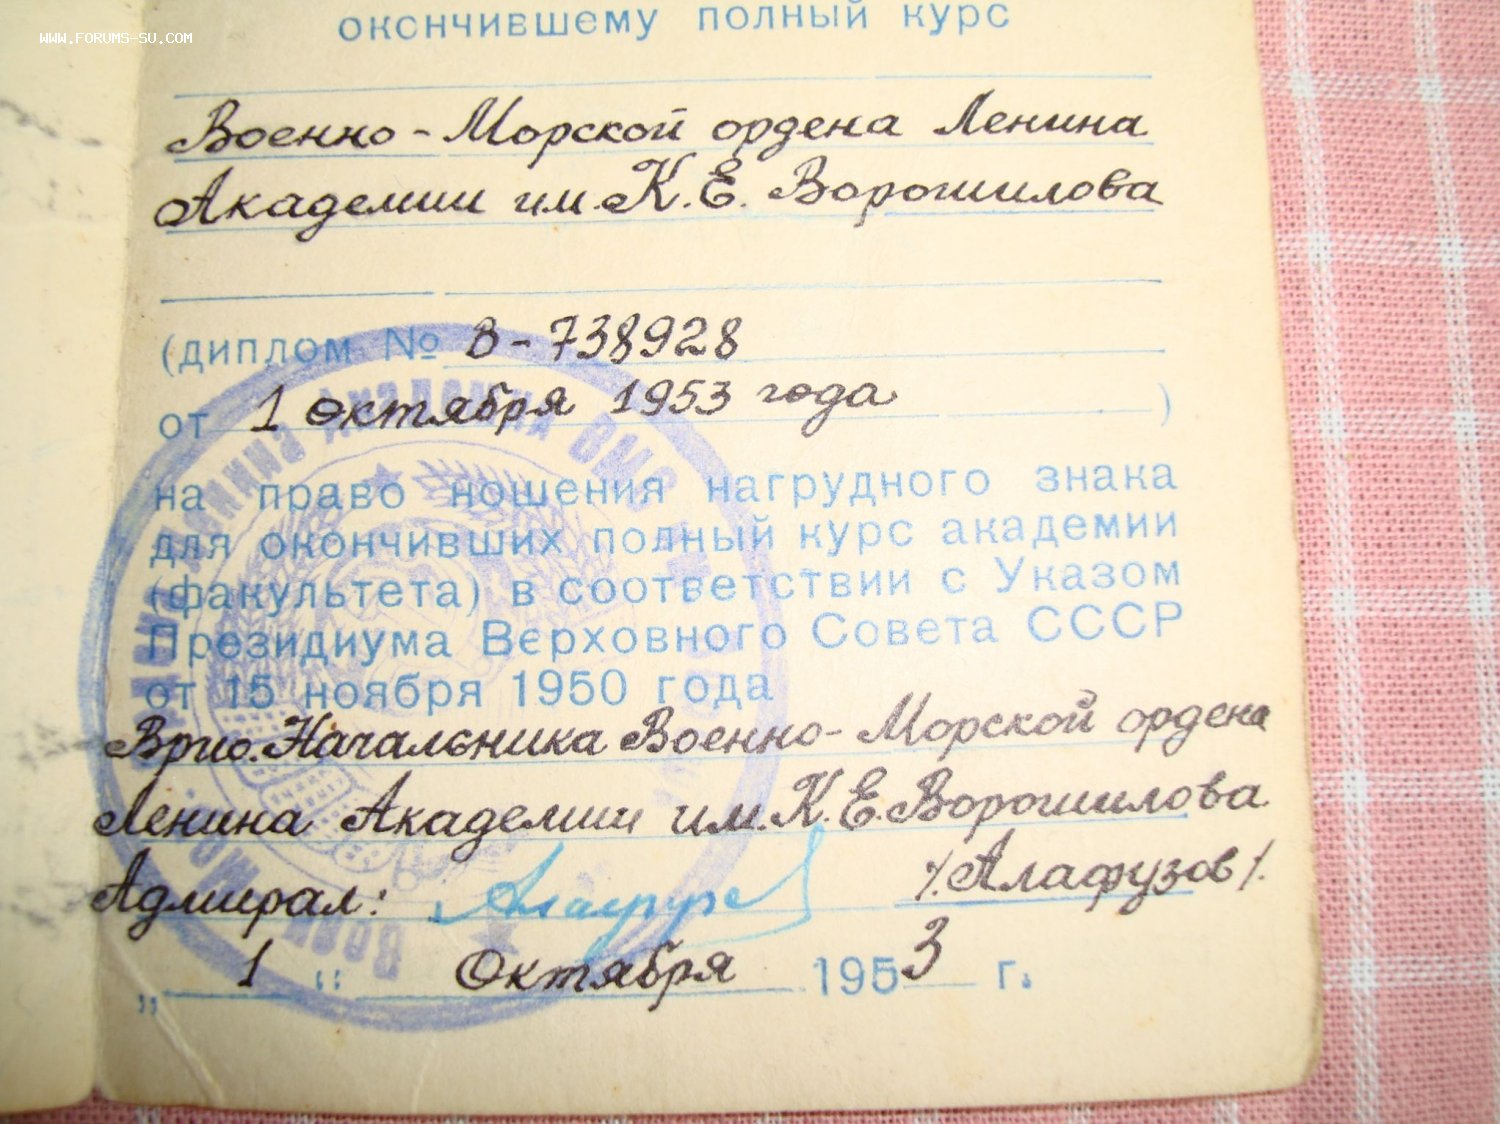 WWW.FORUMS-SU.COM
окончившему полный курс
Военно-Морской ордена Ленина
Академии им. К. Е. Ворошилова
(диплом № В-738928
от 1 октября 1953 года )
на право ношения нагрудного знака
для окончивших полный курс академии
(факультета) в соответствии с Указом
Президиума Верховного Совета СССР
от 15 ноября 1950 года
Врио. Начальника Военно-Морской ордена
Ленина Академии им. К. Е. Ворошилова
Адмирал: /Алафузов/.
„ 1 " Октября 1953 г.
Ленина Академия ВМС
Воен. Мор.